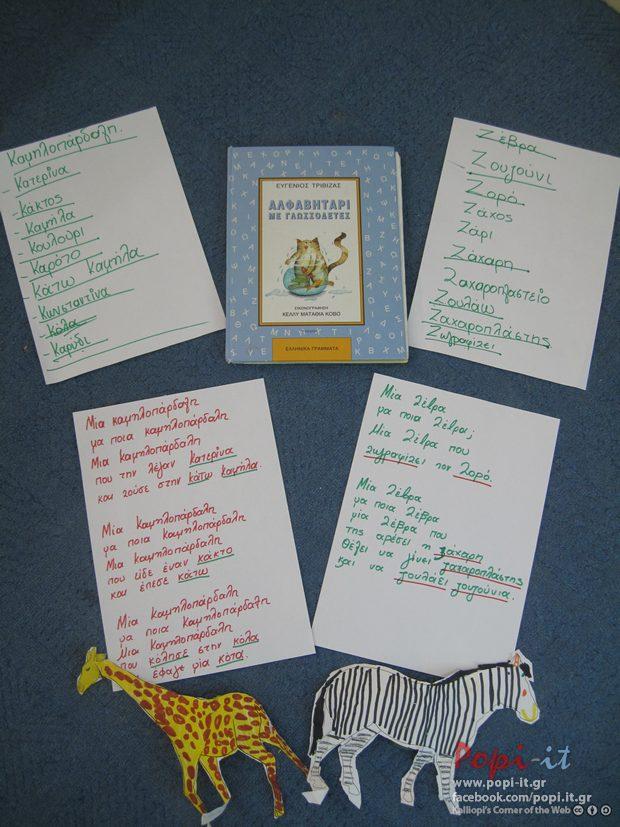 Καμηλοπάρδαλη.
- Κατερίνα
- Κάκτος
- Καμήλα
- Κουλούρι
- Καρότο
- Κάτω Καμήλα
- Κωνσταντίνα
- Κόλα
- Καρύδι
ΕΥΓΕΝΙΟΣ ΤΡΙΒΙΖΑΣ
ΑΛΦΑΒΗΤΑΡΙ
ΜΕ ΓΛΩΣΣΟΔΕΤΕΣ
ΕΙΚΟΝΟΓΡΑΦΗΣΗ
ΚΕΛΛΥ ΜΑΤΑΘΙΑ ΚΟΒΟ
ΕΛΛΗΝΙΚΑ ΓΡΑΜΜΑΤΑ
Ζέβρα
Ζουζούνι
Ζορό
Ζάχος
Ζάρι
Ζάχαρη
Ζαχαροπλαστείο
Ζουλάω
Ζαχαροπλάστης
Ζωγραφίζει
Μια καμηλοπάρδαλη
μα ποια καμηλοπάρδαλη
Μια καμηλοπάρδαλη
που την λέγαν Κατερίνα
και ζούσε στην κάτω καμήλα.
Μια Καμηλοπάρδαλη
μα ποια Καμηλοπάρδαλη
Μια Καμηλοπάρδαλη
που είδε έναν κάκτο
και έπεσε κάτω
Μια Καμηλοπάρδαλη
μα ποια Καμηλοπάρδαλη
Μια Καμηλοπάρδαλη
που κόλησε στην κόλα
έφαγε μία κότα.
Μία Ζέβρα
μα ποια Ζέβρα;
Μία Ζέβρα που
ζωγραφίζει τον Ζορό.
Μία Ζέβρα
μα ποια Ζέβρα
μία Ζέβρα που
της αρέσει η ζάχαρη
θέλει να γίνει ζαχαροπλάστης
και να ζουλάει ζουζούνια.
Popi-it
www.popi-it.gr
facebook.com/popi.it.gr
Kalliopi's Corner of the Web